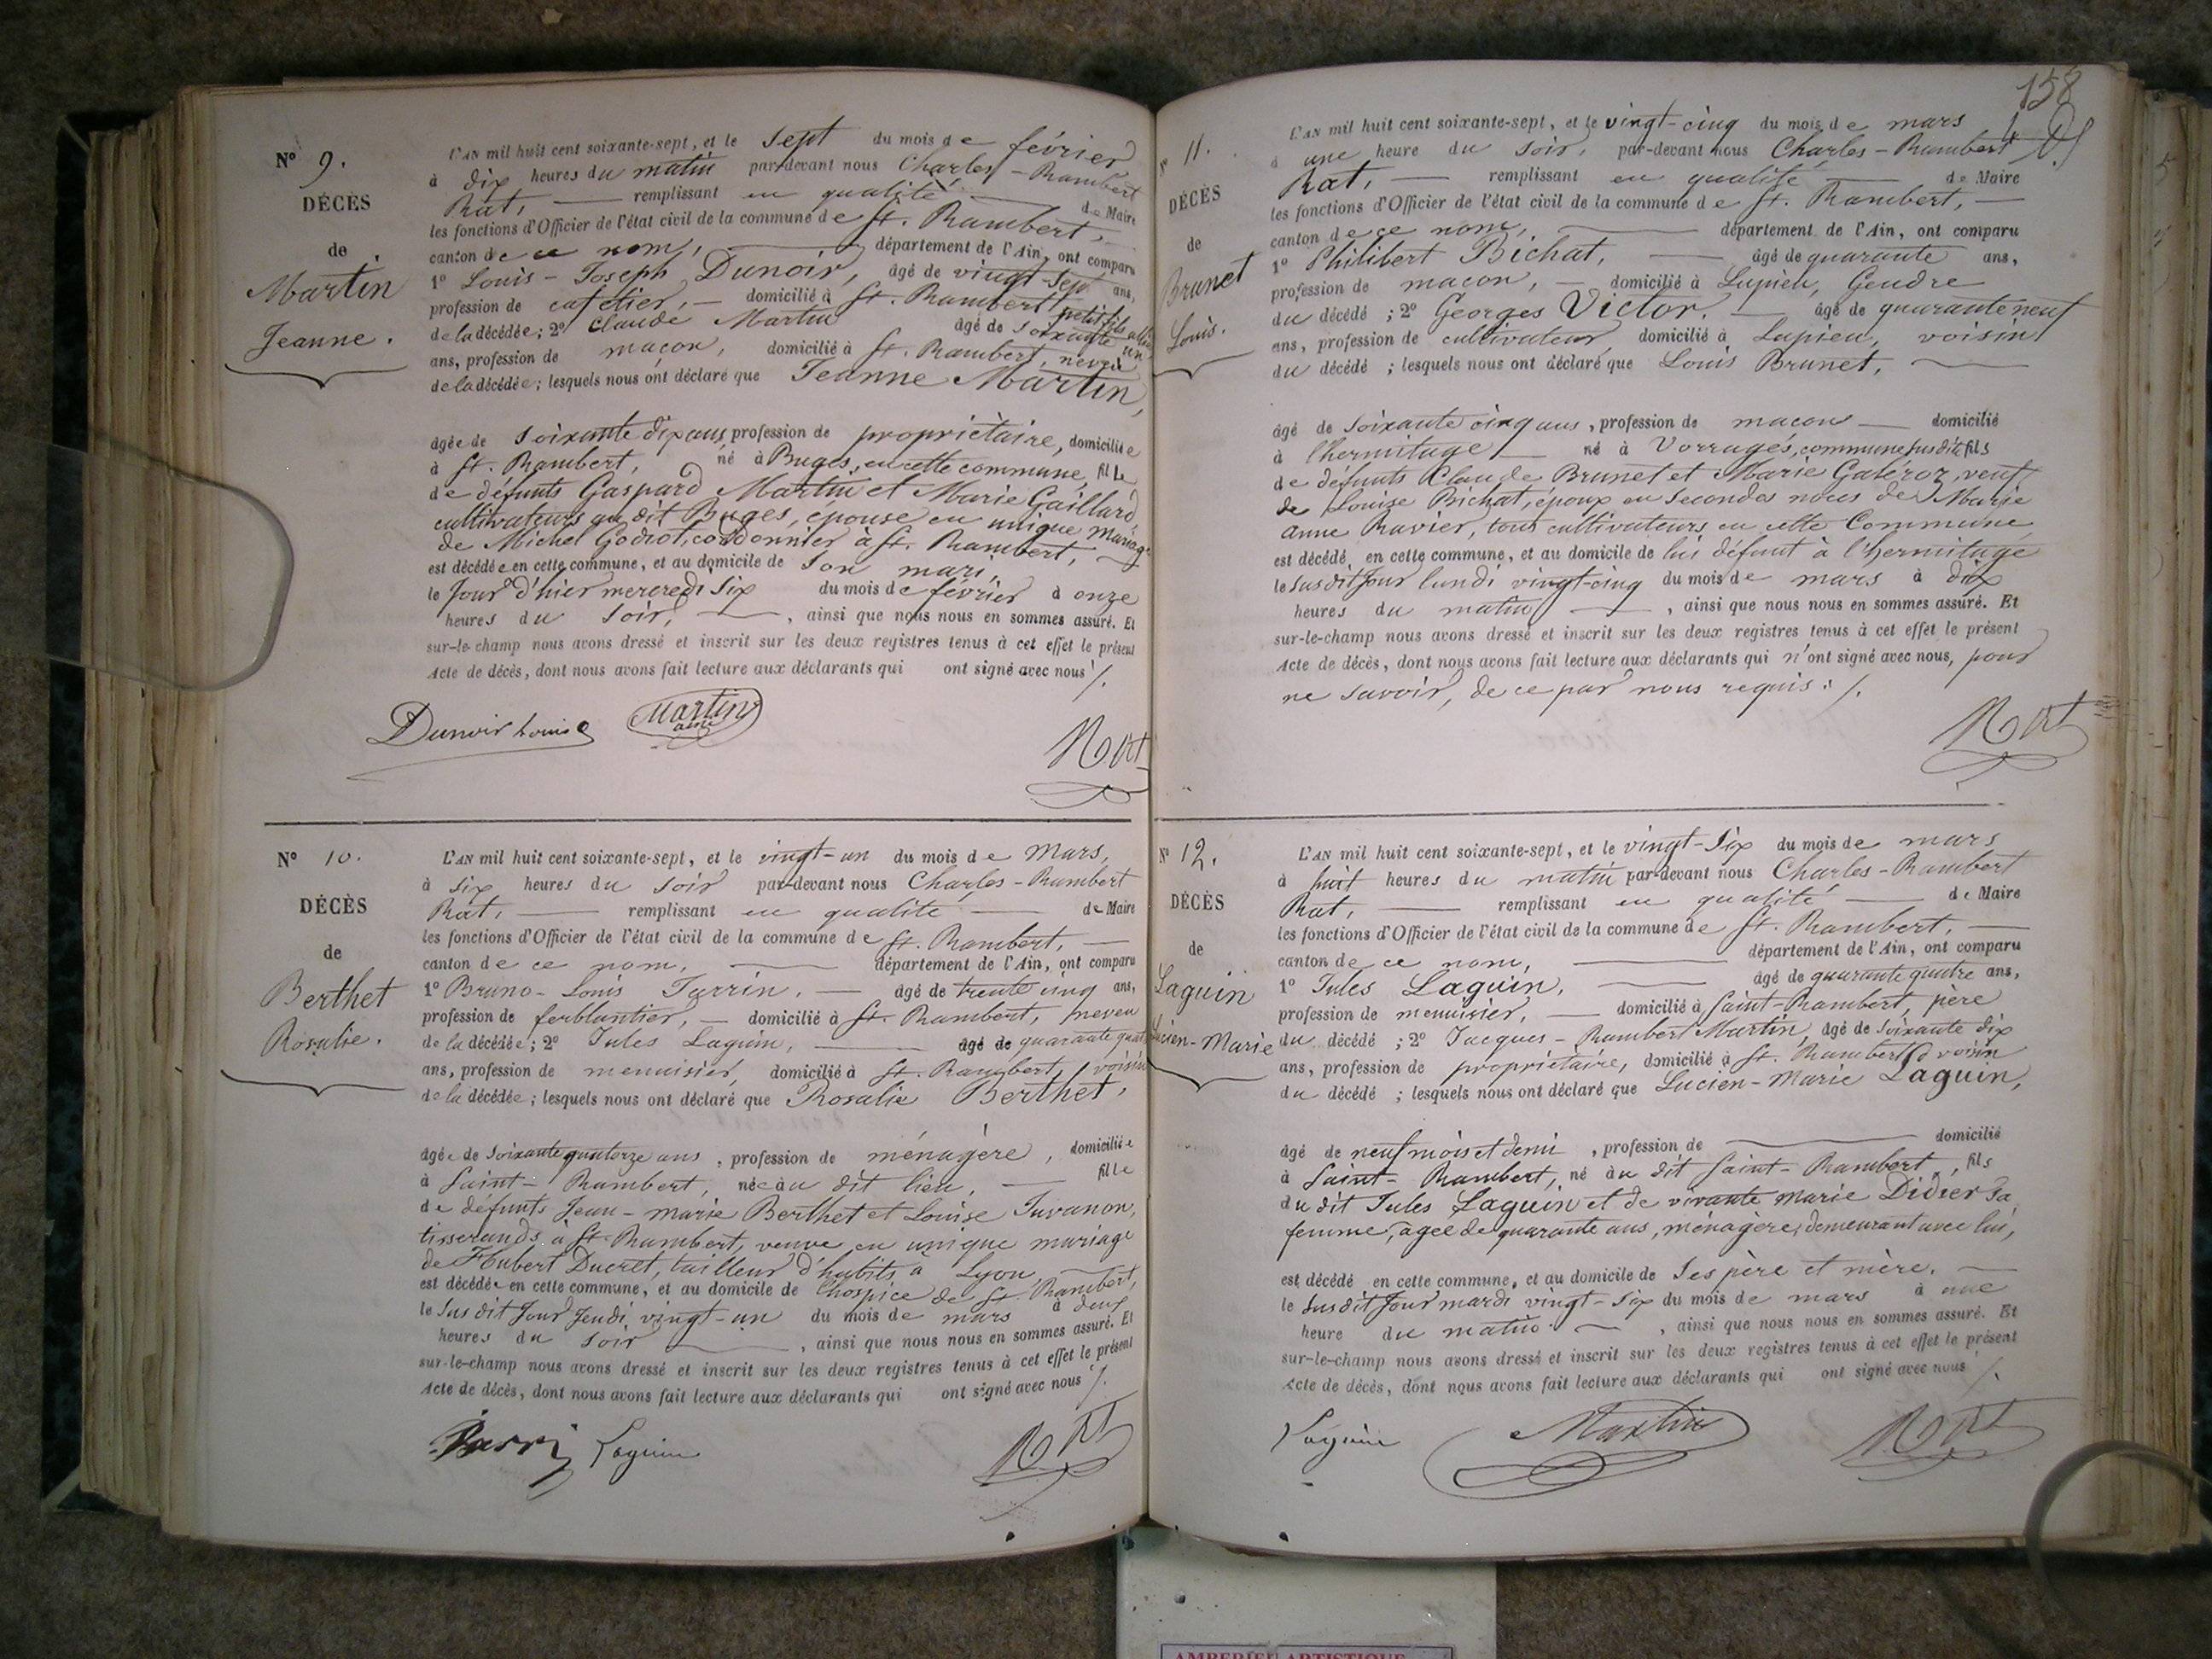 N° 9.
DÉCÈS
de
Martin
Jeanne.
L'AN mil huit cent soixante-sept, et le sept du mois de février
à dix heures du matin par-devant nous Charles-Rambert
Rat, remplissant en qualité de Maire
les fonctions d'Officier de l'état civil de la commune de St. Rambert,
canton de ce nom, département de l'Ain, ont comparu
1° Louis-Joseph Dunoir, âgé de vingt-sept ans,
profession de cafetier, domicilié à St. Rambert, petit fils allié
de la décédée; 2° Claude Martin âgé de soixante un
ans, profession de maçon, domicilié à St. Rambert, neveu
de la décédée; lesquels nous ont déclaré que Jeanne Martin,
âgée de soixante dix ans, profession de propriétaire, domiciliée
à St. Rambert, né à Buges, en cette commune, fille
de défunts Gaspard Martin et Marie Gaillard,
cultivateurs au dit Buges, épouse en unique mariage
de Michel Godiot, cordonnier à St. Rambert,
est décédée en cette commune, et au domicile de son mari,
le jour d'hier mercredi six du mois de février à onze
heures du soir, , ainsi que nous nous en sommes assuré. Et
sur-le-champ nous avons dressé et inscrit sur les deux registres tenus à cet effet le présent
Acte de décès, dont nous avons fait lecture aux déclarants qui ont signé avec nous ./.
Dunoir Louis Martin ainé Rat
N° 10.
DÉCÈS
de
Berthet
Rosalie.
L'AN mil huit cent soixante-sept, et le vingt-un du mois de Mars,
à six heures du soir par-devant nous Charles-Rambert
Rat, remplissant en qualité de Maire
les fonctions d'Officier de l'état civil de la commune de St. Rambert,
canton de ce nom, département de l'Ain, ont comparu
1° Bruno-Louis Tarrin, âgé de trente cinq ans,
profession de ferblantier, domicilié à St. Rambert, neveu
de la décédée; 2° Jules Laguin, âgé de quarante quatre
ans, profession de menuisier, domicilié à St. Rambert, voisin
de la décédée; lesquels nous ont déclaré que Rosalie Berthet,
âgée de soixante quatorze ans, profession de ménagère, domiciliée
à Saint-Rambert, née au dit lieu, fille
de défunts Jean-Marie Berthet et Louise Juvanon,
tisserands à St. Rambert, veuve en unique mariage
de Hubert Ducret, tailleur d'habits à Lyon
est décédée en cette commune, et au domicile de l'hospice de St. Rambert,
le susdit jour jeudi vingt-un du mois de mars à deux
heures du soir , ainsi que nous nous en sommes assuré. Et
sur-le-champ nous avons dressé et inscrit sur les deux registres tenus à cet effet le présent
Acte de décès, dont nous avons fait lecture aux déclarants qui ont signé avec nous ./.
Laguin Rat
158
N° 11.
DÉCÈS
de
Brunet
Louis.
L'AN mil huit cent soixante-sept, et le vingt-cinq du mois de mars
à une heure du soir, par-devant nous Charles-Rambert
Rat, remplissant en qualité de Maire
les fonctions d'Officier de l'état civil de la commune de St. Rambert,
canton de ce nom, département de l'Ain, ont comparu
1° Philibert Bichat, âgé de quarante ans,
profession de maçon, domicilié à Lupieu, Gendre
du décédé; 2° Georges Victor, âgé de quarante neuf
ans, profession de cultivateur, domicilié à Lupieu, voisin
du décédé; lesquels nous ont déclaré que Louis Brunet,
âgé de soixante cinq ans, profession de maçon domicilié
à l'hermitage né à Vorragés, commune susdite fils
de défunts Claude Brunet et Marie Galéroz, veuf
de Louise Bichat, époux en secondes noces de Marie
Anne Ravier, tous cultivateurs en cette Commune
est décédé en cette commune, et au domicile de lui défunt à l'hermitage
le susdit jour lundi vingt-cinq du mois de mars à dix
heures du matin , ainsi que nous nous en sommes assuré. Et
sur-le-champ nous avons dressé et inscrit sur les deux registres tenus à cet effet le présent
Acte de décès, dont nous avons fait lecture aux déclarants qui n'ont signé avec nous, pour
ne savoir, de ce par nous requis ./.
Rat
N° 12.
DÉCÈS
de
Laguin
Lucien-Marie
L'AN mil huit cent soixante-sept, et le vingt-six du mois de mars
à huit heures du matin par-devant nous Charles-Rambert
Rat, remplissant en qualité de Maire
les fonctions d'Officier de l'état civil de la commune de St. Rambert,
canton de ce nom, département de l'Ain, ont comparu
1° Jules Laguin, âgé de quarante quatre ans,
profession de menuisier, domicilié à Saint-Rambert, père
du décédé; 2° Jacques-Rambert Martin, âgé de soixante dix
ans, profession de propriétaire, domicilié à St. Rambert, voisin
du décédé; lesquels nous ont déclaré que Lucien-Marie Laguin,
âgé de neuf mois et demi, profession de domicilié
à Saint-Rambert, né au dit Saint-Rambert, fils
du dit Jules Laguin et de vivante Marie Didier sa
femme, agée de quarante ans, ménagère, demeurant avec lui,
est décédé en cette commune, et au domicile de ses père et mère,
le susdit jour mardi vingt-six du mois de mars à une
heure du matin , ainsi que nous nous en sommes assuré. Et
sur-le-champ nous avons dressé et inscrit sur les deux registres tenus à cet effet le présent
Acte de décès, dont nous avons fait lecture aux déclarants qui ont signé avec nous ./.
Laguin Martin Rat
AMBERIEU ARTISTIQUE